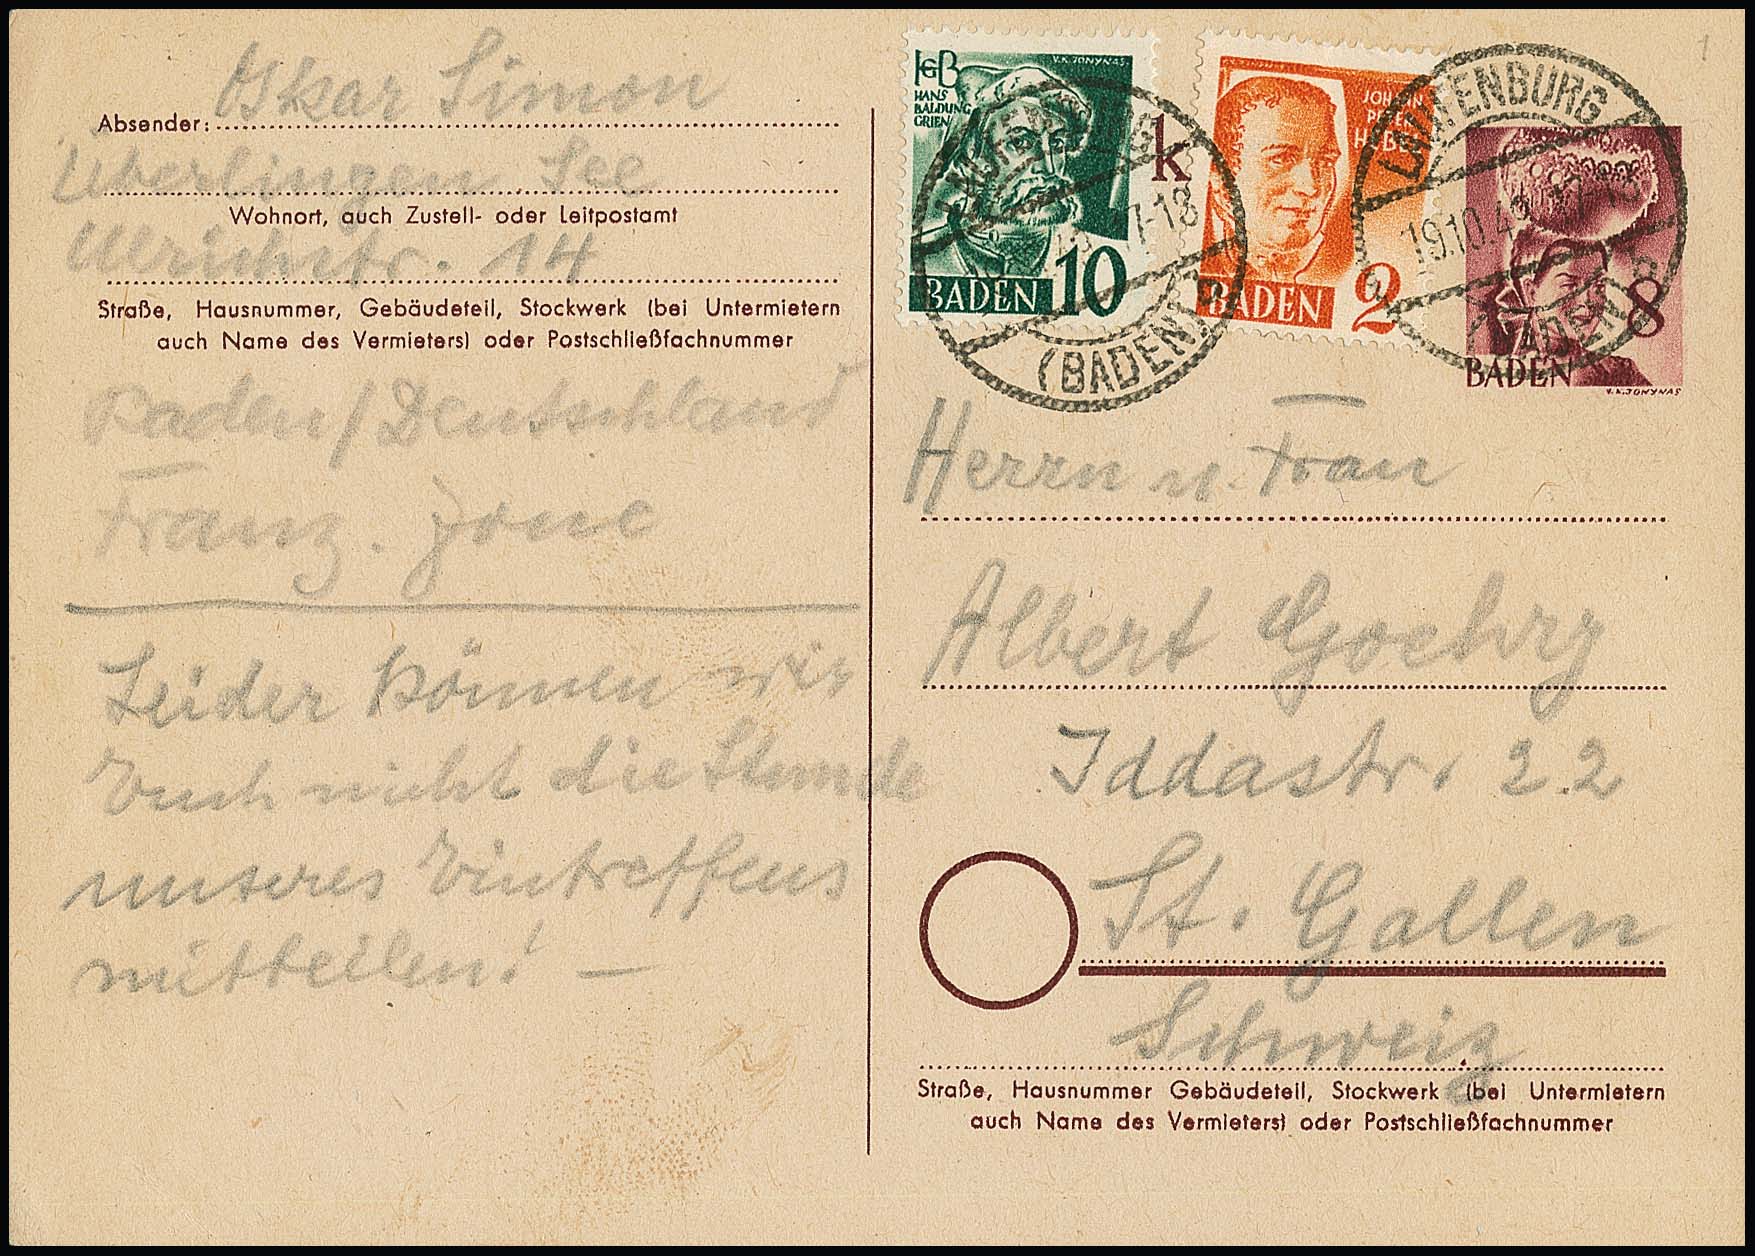 Oskar Simon
Absender:
Überlingen See
Wohnort, auch Zustell- oder Leitpostamt
Ulrichstr. 14
Straße, Hausnummer, Gebäudeteil, Stockwerk (bei Untermietern
auch Name des Vermieters) oder Postschließfachnummer
Baden/Deutschland
Franz. Zone
Leider können wir
Euch nicht die Stunde
unseres Eintreffens
mitteilen! —
HGB
HANS
BALDUNG
GRIEN
V.K. JONYNAS
BADEN 10
k
JOHANN
PETER
HEBEL
BADEN 2
LAUFENBURG
17-18
(BADEN)
LAUFENBURG
19.10.48 17-18
(BADEN)
8
BADEN
V.K. JONYNAS
1
Herrn u. Frau
Albert Goehry
Iddastr. 22
St. Gallen
Schweiz
Straße, Hausnummer Gebäudeteil, Stockwerk (bei Untermietern
auch Name des Vermieters) oder Postschließfachnummer